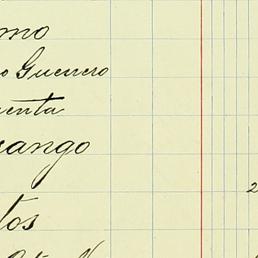 mo
o Guerrero
uenta
ango
tos
2